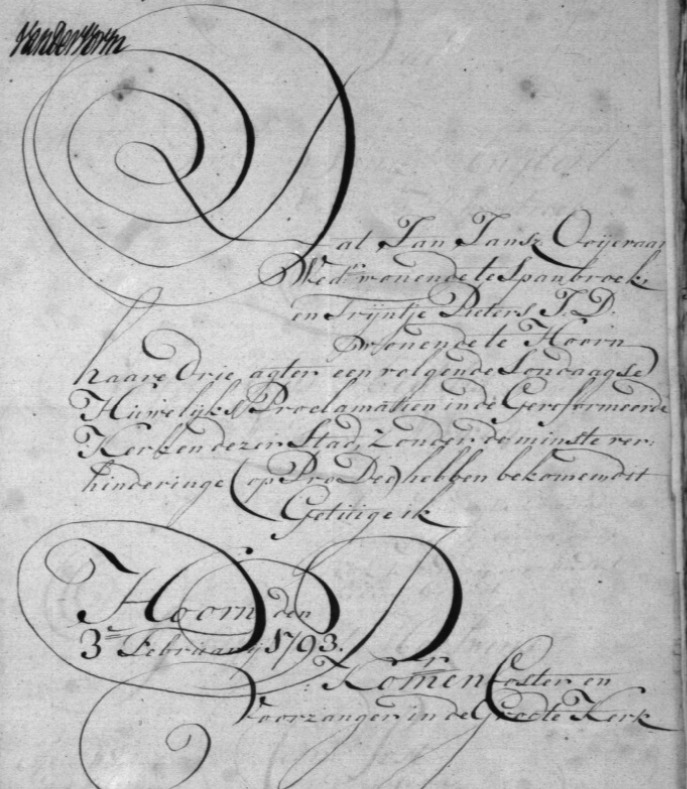 Dat Jan Jansz Ooijevaar
Wedr wonende te Spanbroek
en Trijntje Pieters J.D.
wonende te Hoorn
haare drie agter een volgende Sondaagse
Huwelijks Proclamatien in de Gereformeerde
Kerk en dezer Stad, zonder de minste ver,
hinderinge (op Pro Deo) hebben bekomen dit
Getuige ik
Hoorn den
3e February 1793.
Komen Coster en
Voorzanger in de Groote Kerk